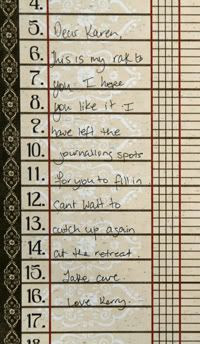 4.
5. Dear Karen,
6. This is my rak to
7. you. I hope
8. you like it. I
9. have left the
10. journalling spots
11. for you to fill in
12. Cant wait to
13. catch up again
14. at the retreat.
15. Take care
16. Love Kerry.
17.
18